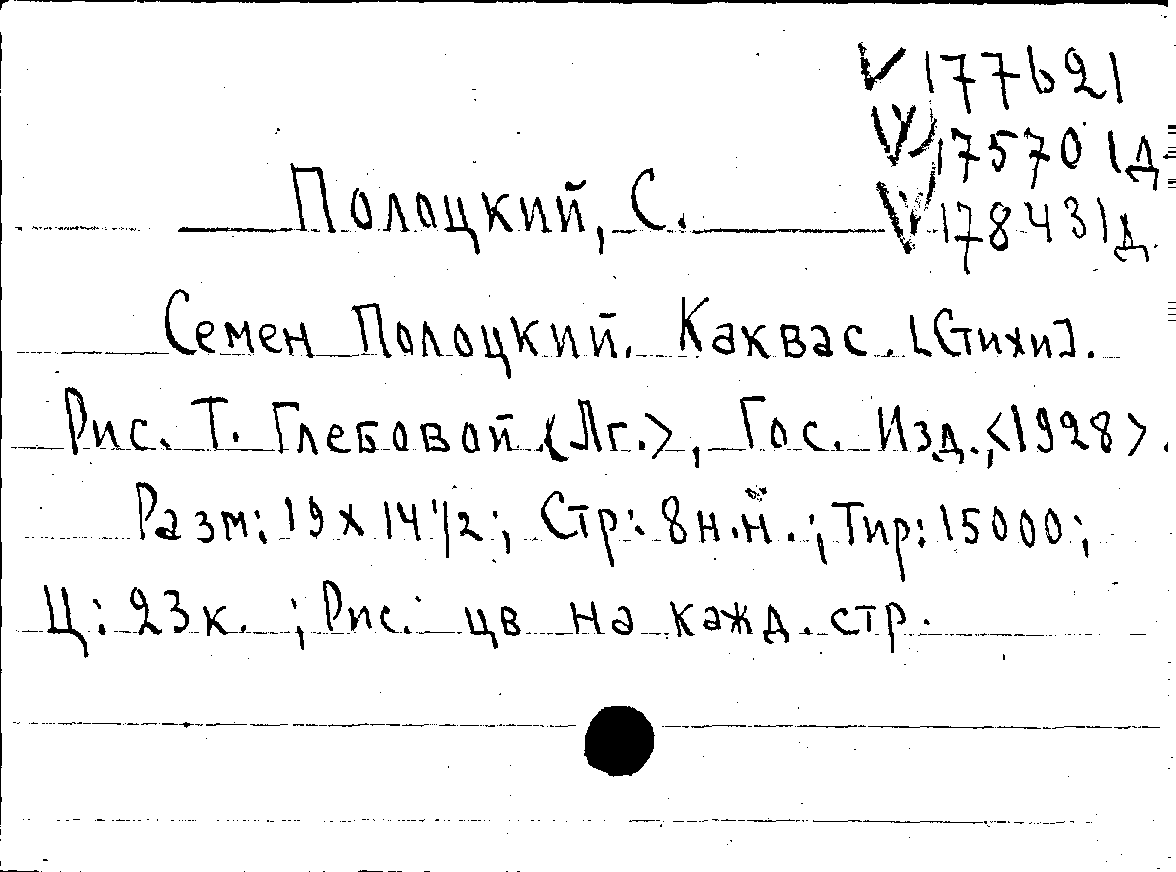 177621
175701д
178431д.
Полоцкий, С.
Семен Полоцкий. Каквас. [Стихи].
Рис. Т. Глебовой <Лг.>, Гос. Изд., <1928>.
Разм: 19 х 14 1/2; Стр: 8 н.н.; Тир: 15000;
Ц: 23 к. ; Рис: цв на кажд. стр.